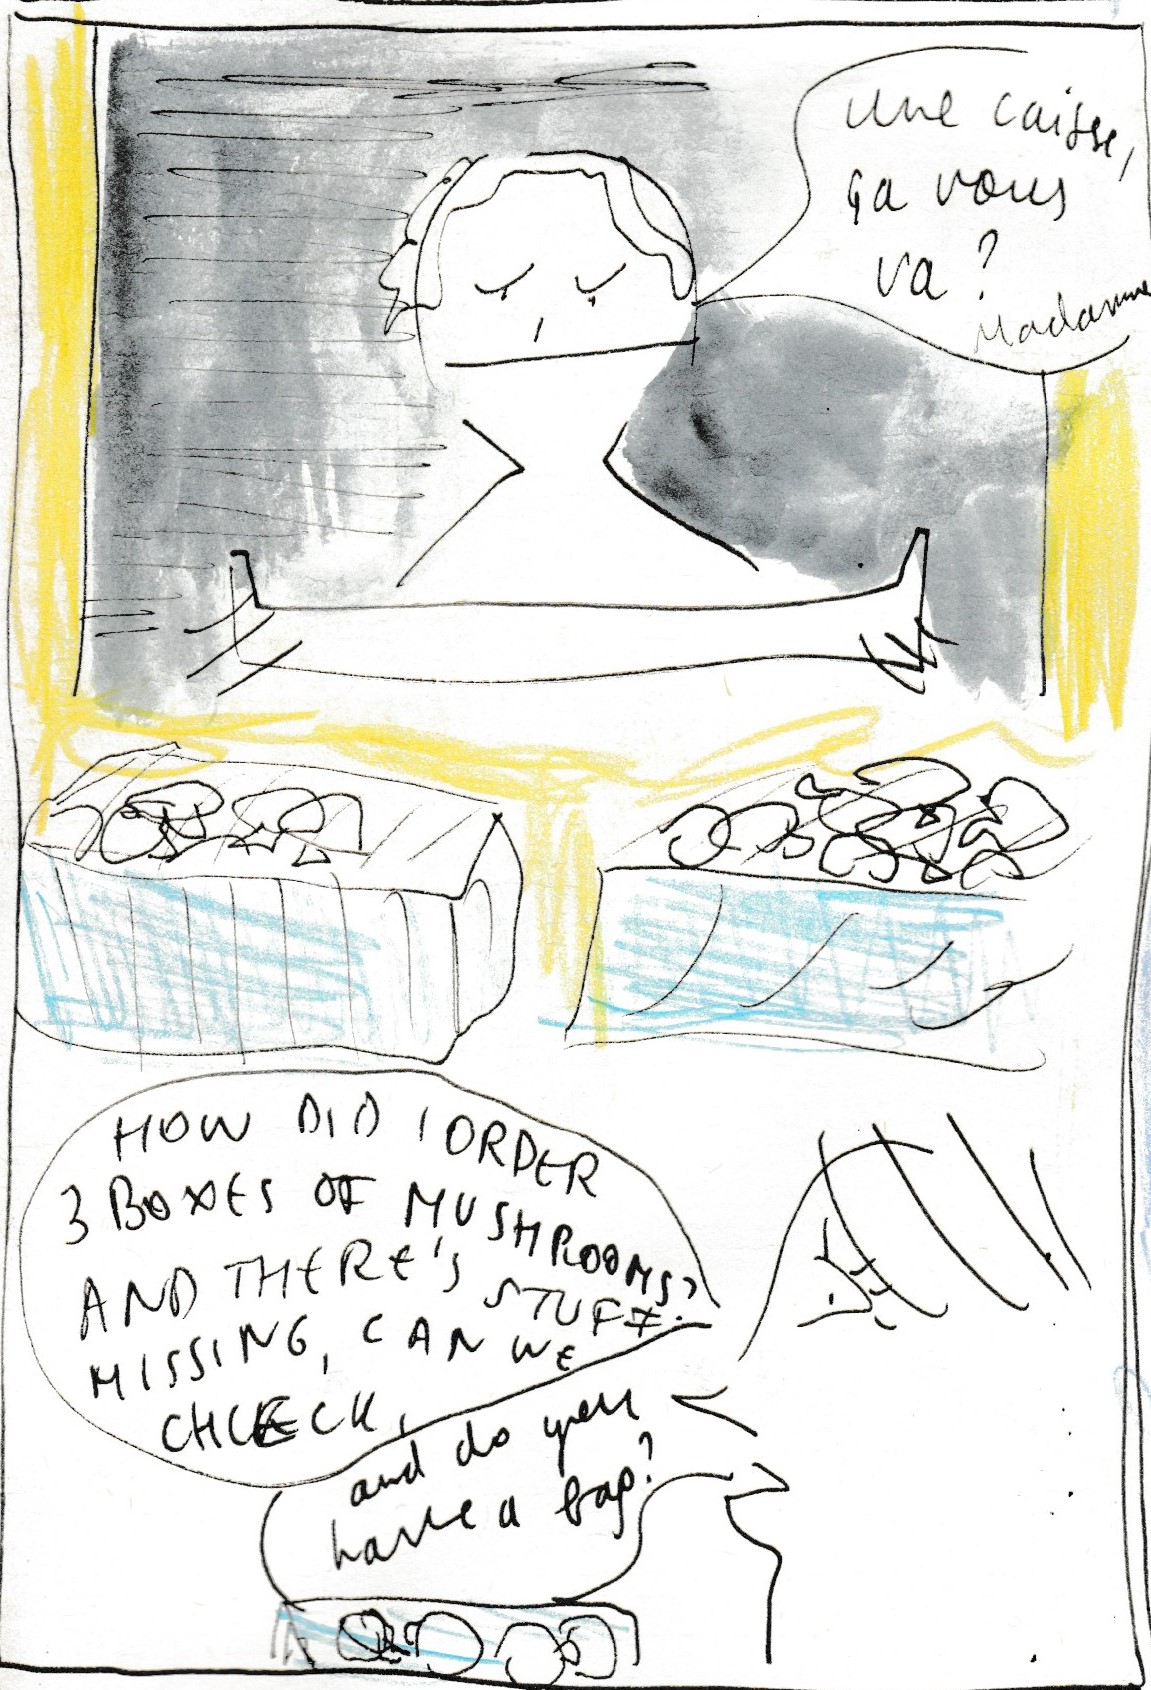 une caisse,
ça vous
va?
Madame
HOW DID I ORDER
3 BOXES OF MUSHROOMS?
AND THERE'S STUFF
MISSING, CAN WE
CHECK,
and do you
have a bag?